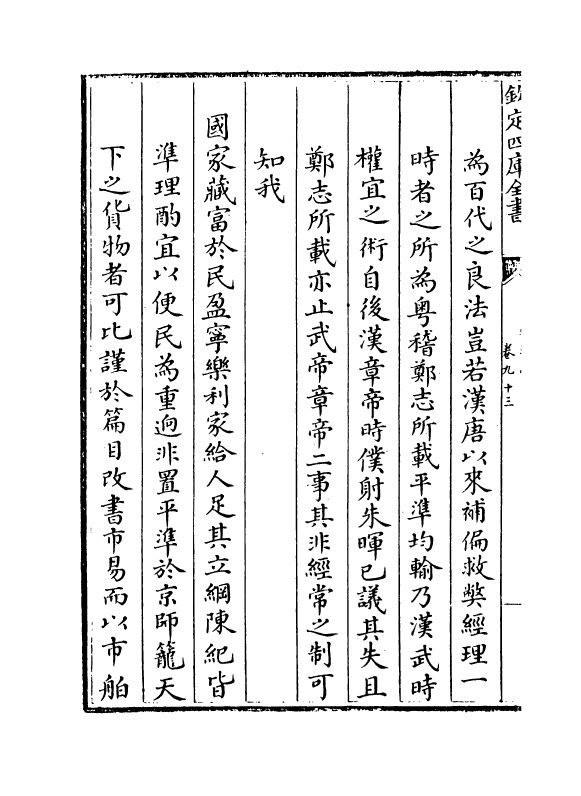 欽定四庫全書
卷九十三
為百代之良法豈若漢唐以來補偏救弊經理一
時者之所為粤稽鄭志所載平準均輸乃漢武時
權宜之術自後漢章帝時僕射朱暉已議其失且
鄭志所載亦止武帝章帝二事其非經常之制可
知我
國家藏富於民盈寧樂利家給人足其立綱陳紀皆
準理酌宜以便民為重逈非置平準於京師籠天
下之貨物者可比謹於篇目改書市易而以市舶